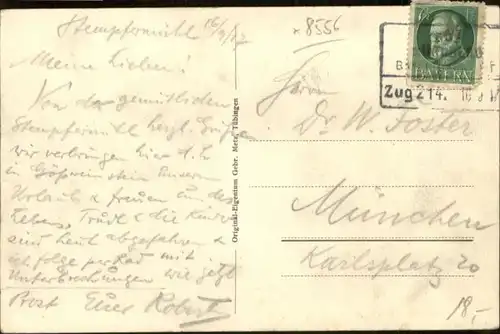 Stempfermühl 16/9/17
Meine Lieben!
Von der gemütlichen
Stempfermühl herzl. Grüße
wir verbringen hier d.h.
in Gößweinstein unseren
Urlaub & freuen uns des
Lebens, Trudl & die Kinder
sind heut abgefahren &
ich folge per Rad mit
Unterbrechungen wie jetzt
Prost Euer Robert
Original-Eigentum Gebr. Metz, Tübingen
* 8556
BAYERN
Zug 214
Herrn
Dr. W. Foster
München
Karlsplatz 20
18,-